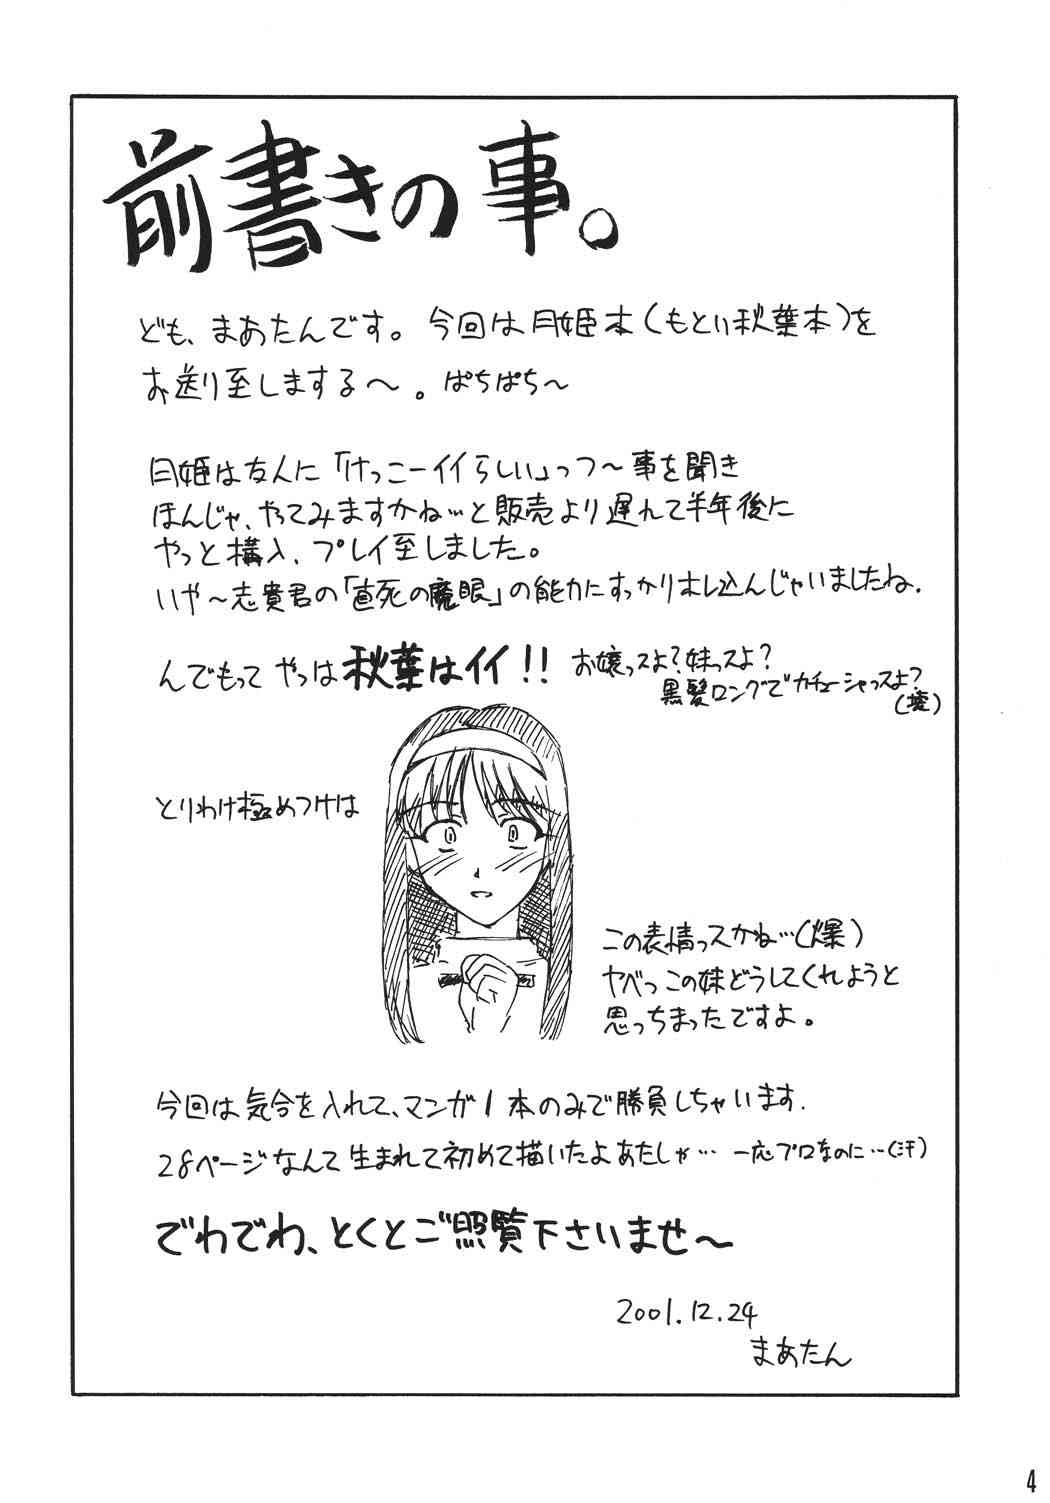 前書きの事。
ども、まあたんです。今回は月姫本(もとい秋葉本)を
お送り至しまする～。ぱちぱち～
月姫は友人に「けっこーイイらしい」っつ～事を聞き
ほんじゃ、やってみますかね…と販売より遅れて半年後に
やっと購入、プレイ至しました。
いや～志貴君の「直死の魔眼」の能力にすっかりほし込んじゃいましたね.
んでもって やっは 秋葉はイイ!! お嬢っスよ?妹っスよ?
黒髪ロングでカチューシャっスよ?
(壊)
とりわけ極めつけは
この表情っスかね…(爆)
ヤベっこの妹どうしてくれようと
思っちまったですよ。
今回は気合を入れて、マンガ1本のみで勝負しちゃいます.
28ページなんて生まれて初めて描いたよあたしゃ… 一応プロなのに…(汗)
でわでわ、とくとご照覧下さいませ～
2001.12.24
まあたん
4